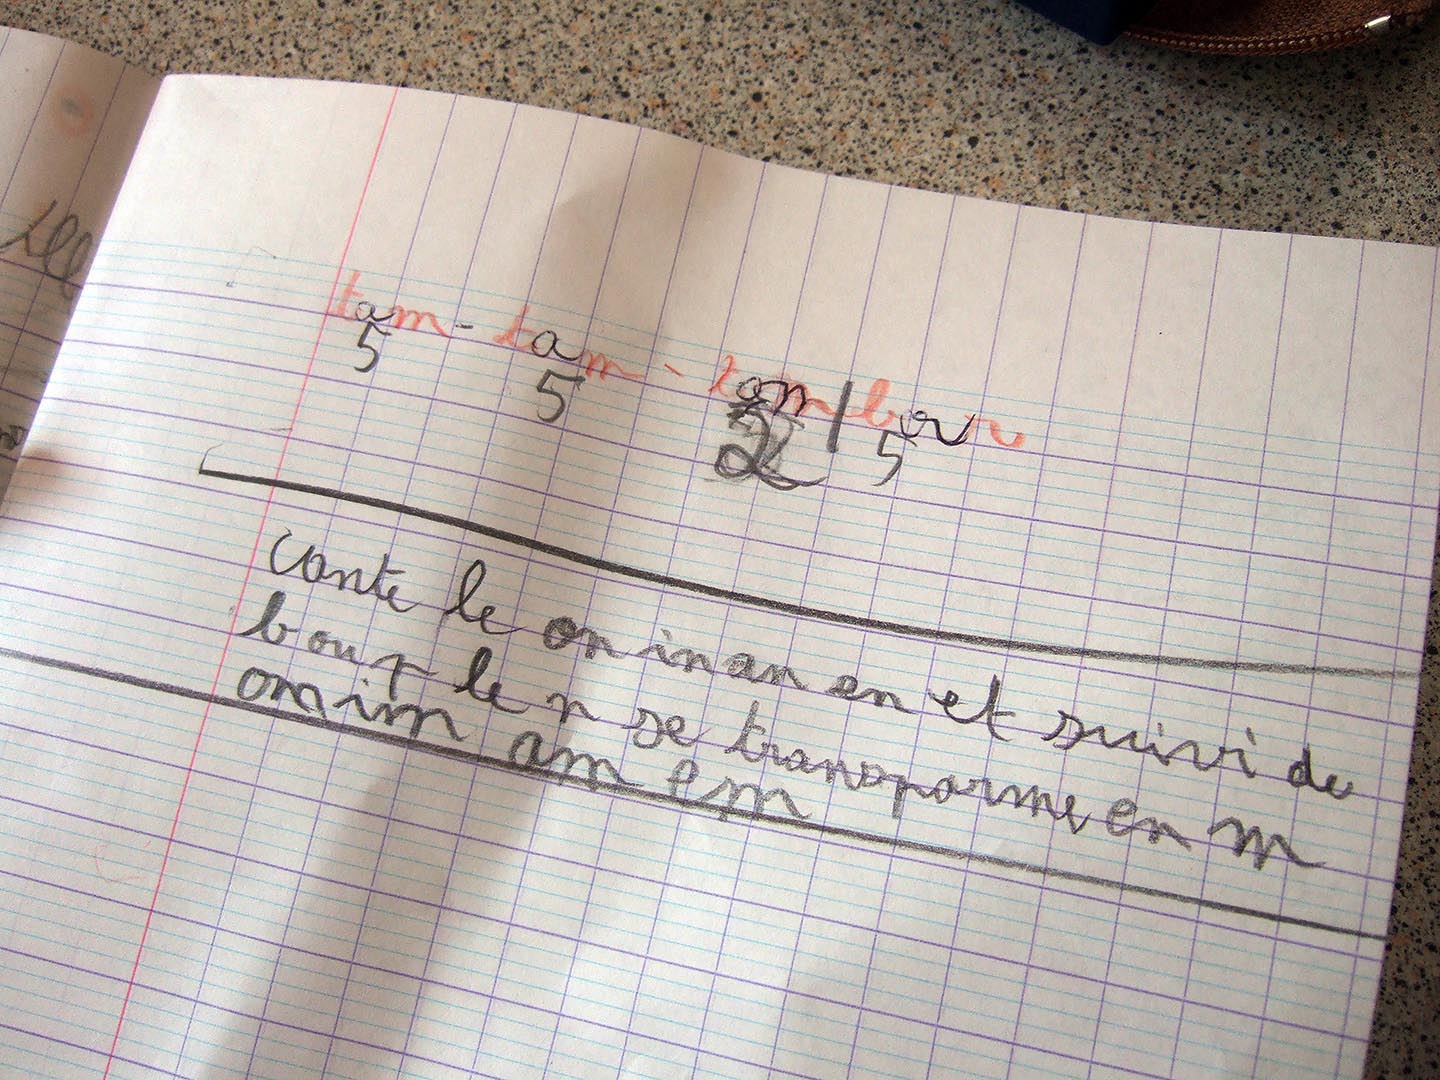 tam - tam - tam|bour
5 5 2 5
cante le on in an en et suivi de
b ou p le n se transparme en m
om im am em